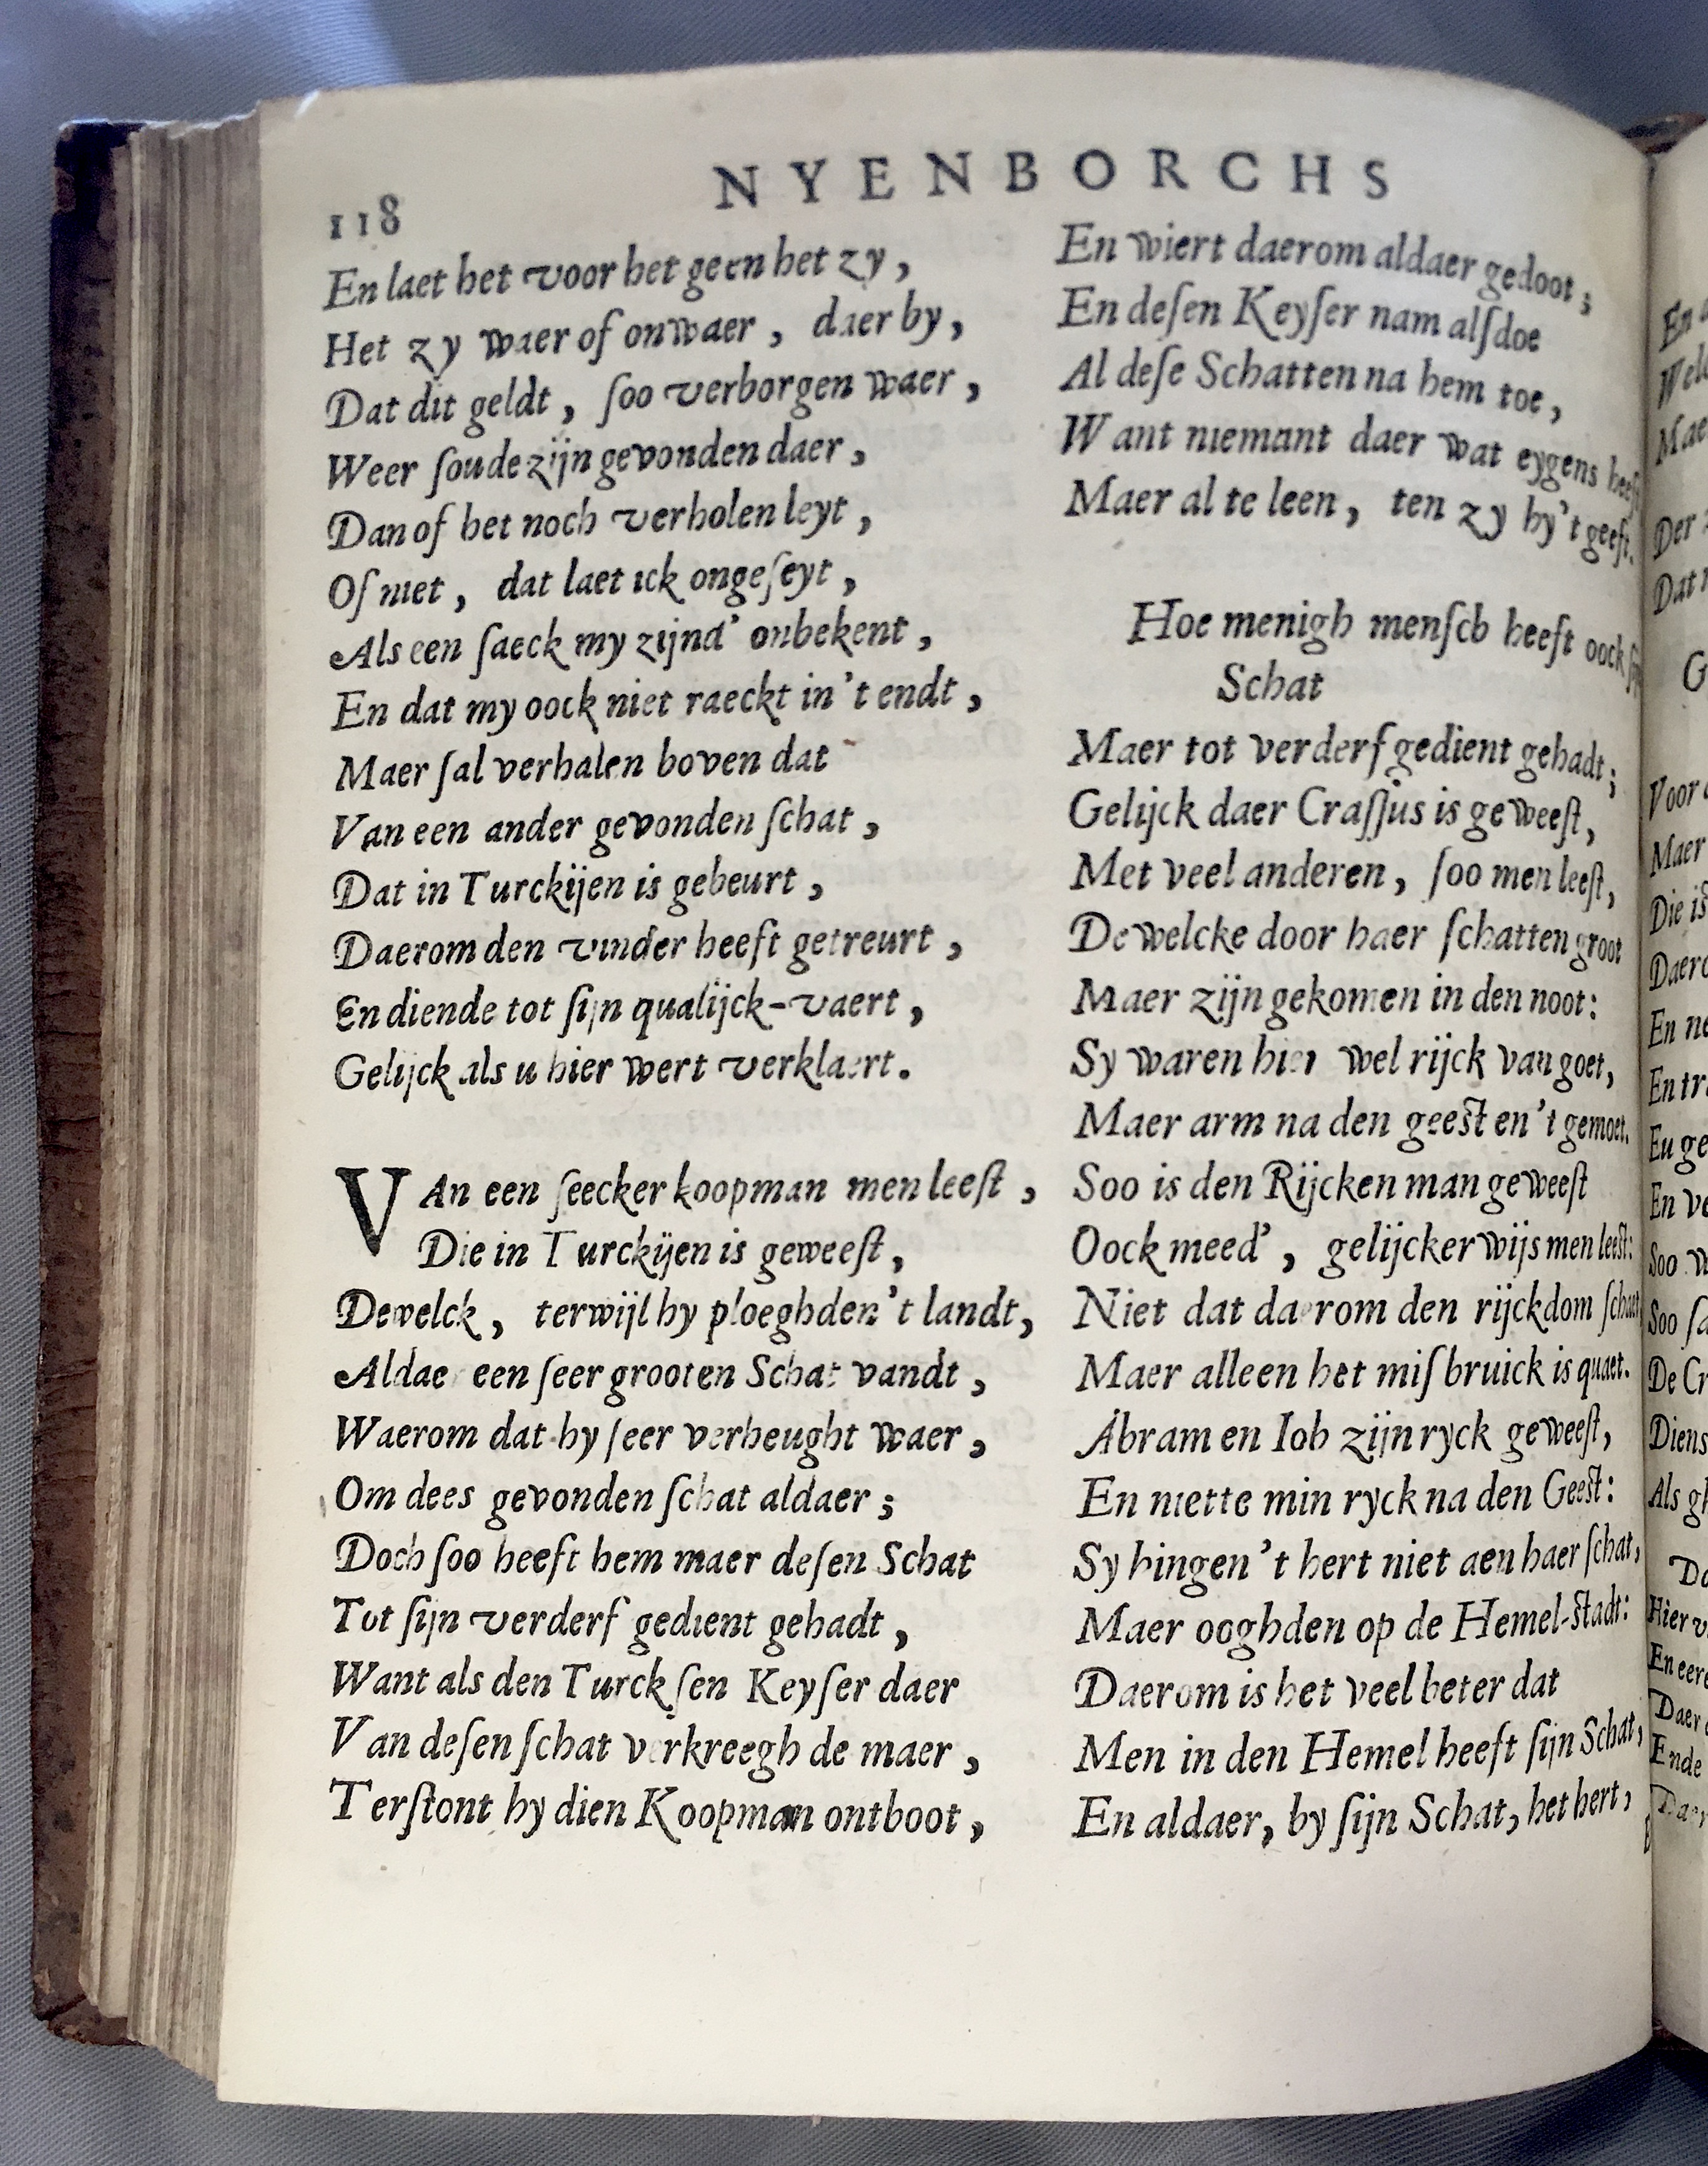 118
NYENBORCHS
En laet het voor het geen het zy,
Het zy waer of onwaer, daer by,
Dat dit geldt, ſoo verborgen waer,
Weer ſoude zijn gevonden daer,
Dan of het noch verholen leyt,
Of niet, dat laet ick ongeſeyt,
Als een ſaeck my zijnd' onbekent,
En dat my oock niet raeckt in't endt,
Maer ſal verhalen boven dat
Van een ander gevonden ſchat,
Dat in Turckijen is gebeurt,
Daerom den vinder heeft getreurt,
En diende tot ſijn qualijck-vaert,
Gelijck als u hier wert verklaert.
VAn een ſeecker koopman men leeſt,
Die in Turckijen is geweeſt,
Dewelck, terwijl hy ploeghden't landt,
Aldaer een ſeer grooten Schat vandt,
Waerom dat hy ſeer verheught waer,
Om dees gevonden ſchat aldaer;
Doch ſoo heeft hem maer deſen Schat
Tot ſijn verderf gedient gehadt,
Want als den Turckſen Keyſer daer
Van deſen ſchat verkreegh de maer,
Terſtont hy dien Koopman ontboot,
En wiert daerom aldaer gedoot;
En deſen Keyſer nam alſdoe
Al deſe Schatten na hem toe,
Want niemant daer wat eygens heeft
Maer al te leen, ten zy hy't geeft.
Hoe menigh menſch heeft oock ſijn
Schat
Maer tot verderf gedient gehadt;
Gelijck daer Craſſus is geweeſt,
Met veel anderen, ſoo men leeſt,
De welcke door haer ſchatten groot
Maer zijn gekomen in den noot:
Sy waren hier wel rijck van goet,
Maer arm na den geeſt en't gemoet.
Soo is den Rijcken man geweeſt
Oock meed', gelijckerwijs men leeſt:
Niet dat daerom den rijckdom ſchaet,
Maer alleen het miſbruick is quaet.
Abram en Iob zijn ryck geweeſt,
En niette min ryck na den Geeſt:
Sy hingen't hert niet aen haer ſchat,
Maer ooghden op de Hemel-ſtadt:
Daerom is het veel beter dat
Men in den Hemel heeft ſijn Schat,
En aldaer, by ſijn Schat, het hert,